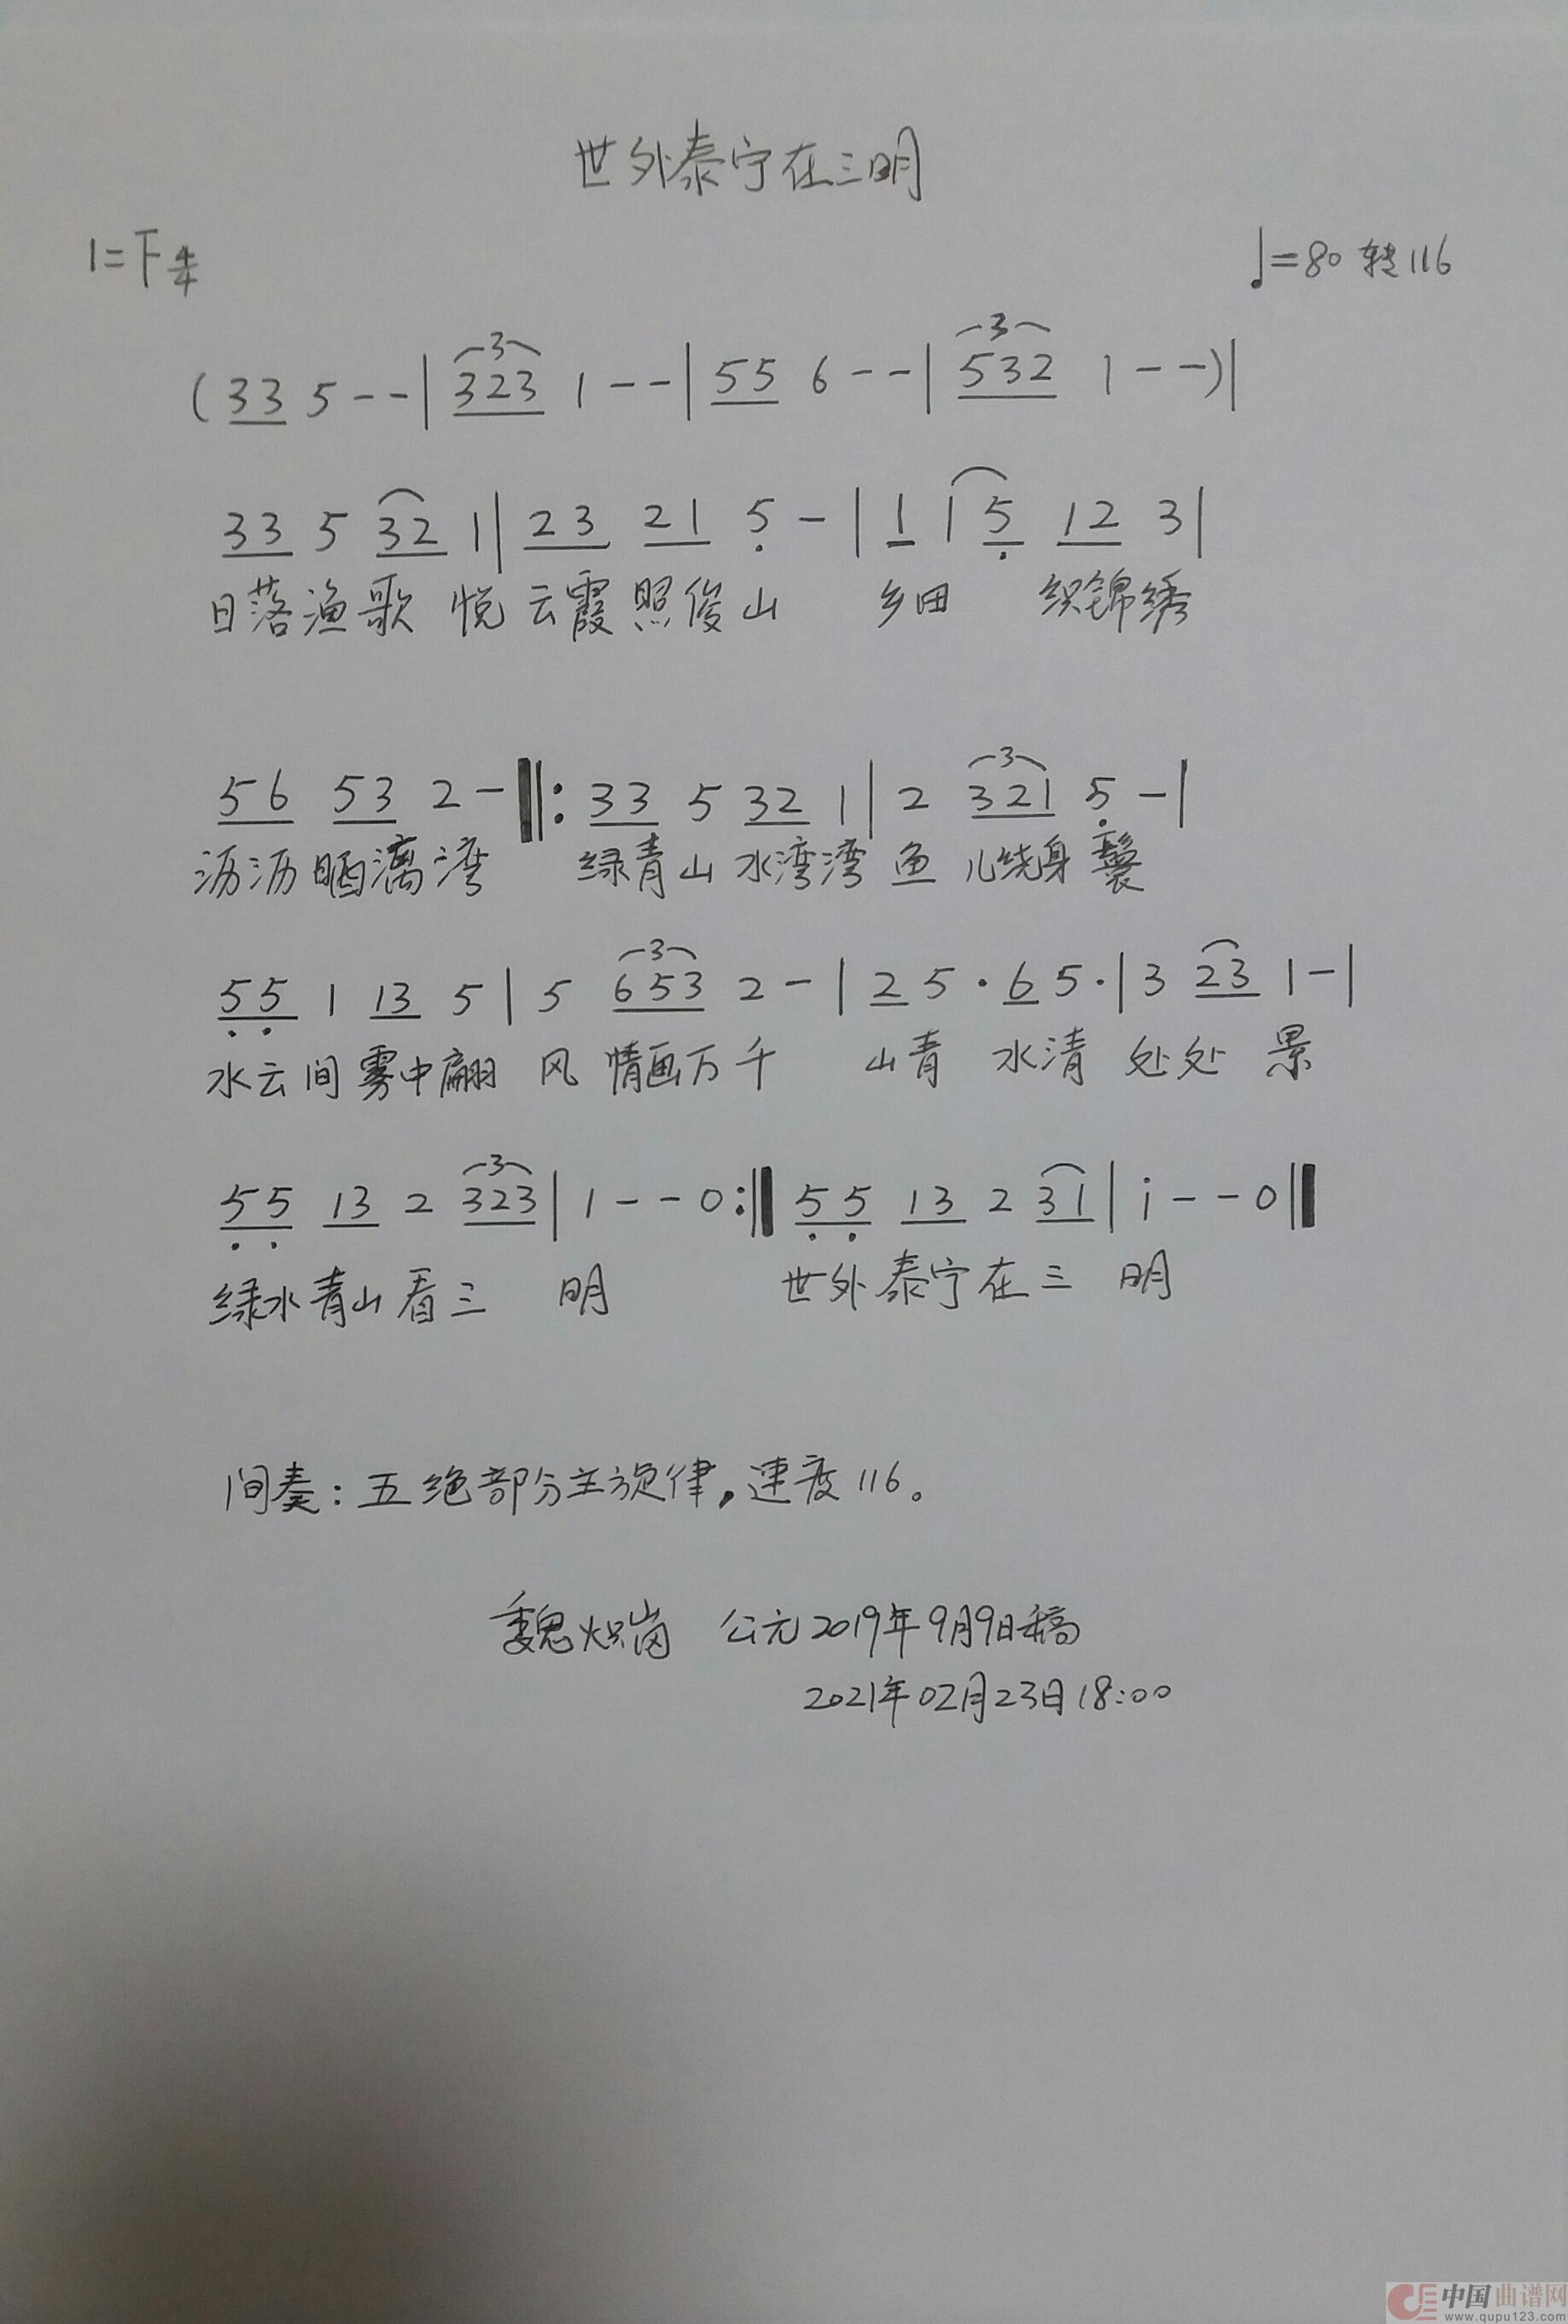 世外泰宁在三明
1=F 4/4 ♩=80 转116
(33 5--|323 1--|55 6--|532 1--)|
33 5 32 1|23 21 5-|1 1 5 12 3|
日落渔歌 悦 云霞照俊山 乡田 织锦绣
56 53 2-‖: 33 5 32 1|2 321 5-|
沥沥晒漓湾 绿青山水湾湾 鱼 儿绕身鬟
55 1 13 5|5 653 2-|2 5·6 5·|3 23 1-|
水云间雾中翩 风 情画万千 山青 水清 处处 景
55 13 2 323|1--0:‖55 13 2 31|i--0‖
绿水青山看三 明 世外泰宁在三 明
间奏:五绝部分主旋律,速度116。
魏炽岗 公元2019年9月9日稿
2021年02月23日18:00
中国曲谱网
www.qupu123.com